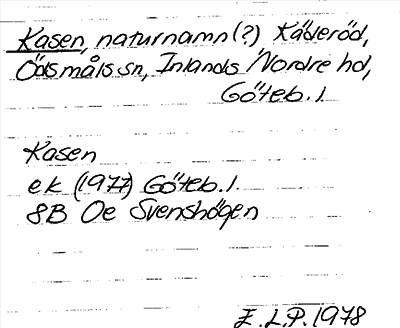 Kasen, naturnamn(?) Käderöd,
Ödsmåls sn, Inlands Nordre hd,
Göteb. l.
Kasen
ek (1977) Göteb. l.
8B Oe Svenshögen
E.L.P. 1978